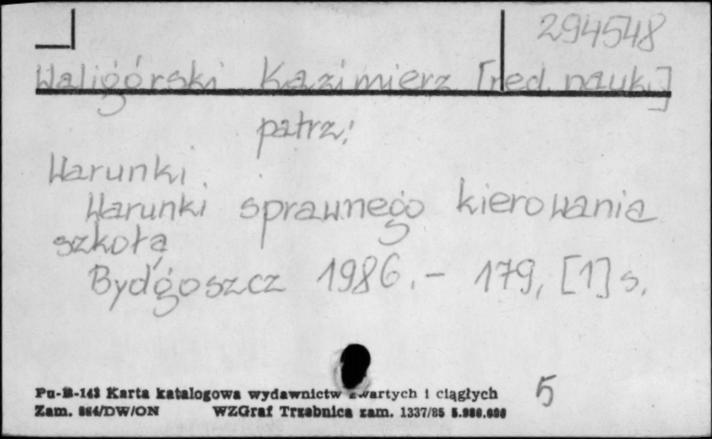 294548
Waligórski Kazimierz [red. nauk.]
patrz:
Warunki
Warunki sprawnego kierowania
szkołą
Bydgoszcz 1986.- 179, [1] s.
Pu-B-143 Karta katalogowa wydawnictw zwartych i ciągłych
5
Zam. 864/DW/ON WZGraf Trzebnica zam. 1337/85 5.980.000